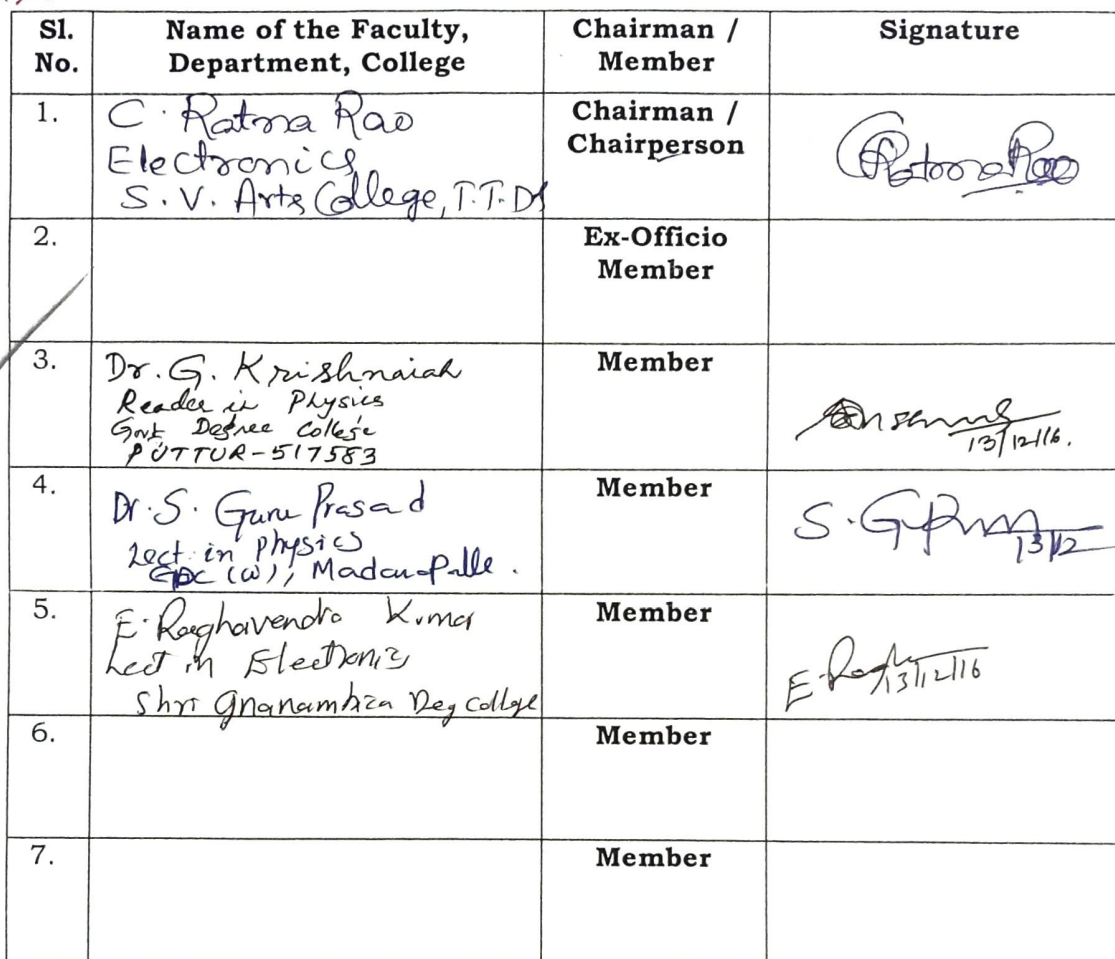 Sl. No.
Name of the Faculty, Department, College
Chairman / Member
Signature
1.
C. Ratna Rao
Electronics
S.V. Arts College, T.T.Ds
Chairman / Chairperson
C Ratna Rao
2.
Ex-Officio Member
3.
Dr. G. Krishnaiah
Reader in Physics
Govt Degree College
PUTTUR-517583
Member
13/12/16.
4.
Dr. S. Guru Prasad
Lect. in physics
GDC (W), Madanapalle.
Member
13/12
5.
E. Raghavendra Kumar
Lect in Electronics
Shri Gnanambica Deg college
Member
E. Ragh
13/12/16
6.
Member
7.
Member